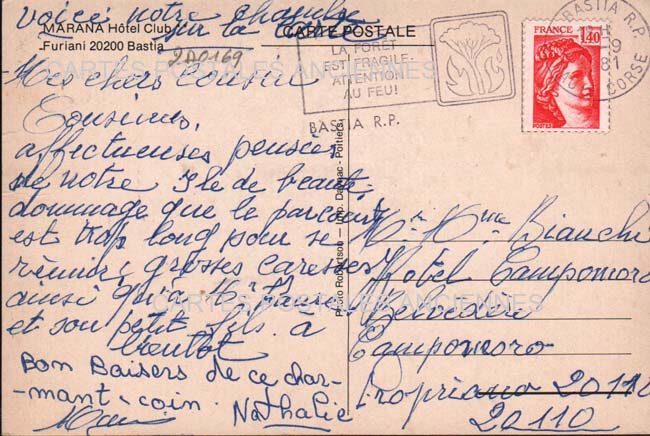 voici notre chambre
sur la
MARANA Hôtel Club
Furiani 20200 Bastia
CARTE POSTALE
2D0169
LA FORET
EST FRAGILE
ATTENTION
AU FEU!
BASTIA R.P.
BASTIA R.P.
19
81
CORSE
FRANCE
1,40
POSTES
Mes chers Cousin
Cousines,
affectueuses pensées
de notre Ile de beauté,
dommage que le parcours
est trop long pour se
réunir, grosses caresses
ainsi qu'à
et son petit fils. a
bientôt
Bon Baisers de ce char-
-mant-coin.
Nathalie
Photo Robertson - Imp. Dansac - Poitiers
Mr Mme Bianchi
Hotel Campomoro
Belvédère
Campomoro
Propriano 20110
20110
CARTES POSTALES ANCIENNES
CARTES POSTALES ANCIENNES